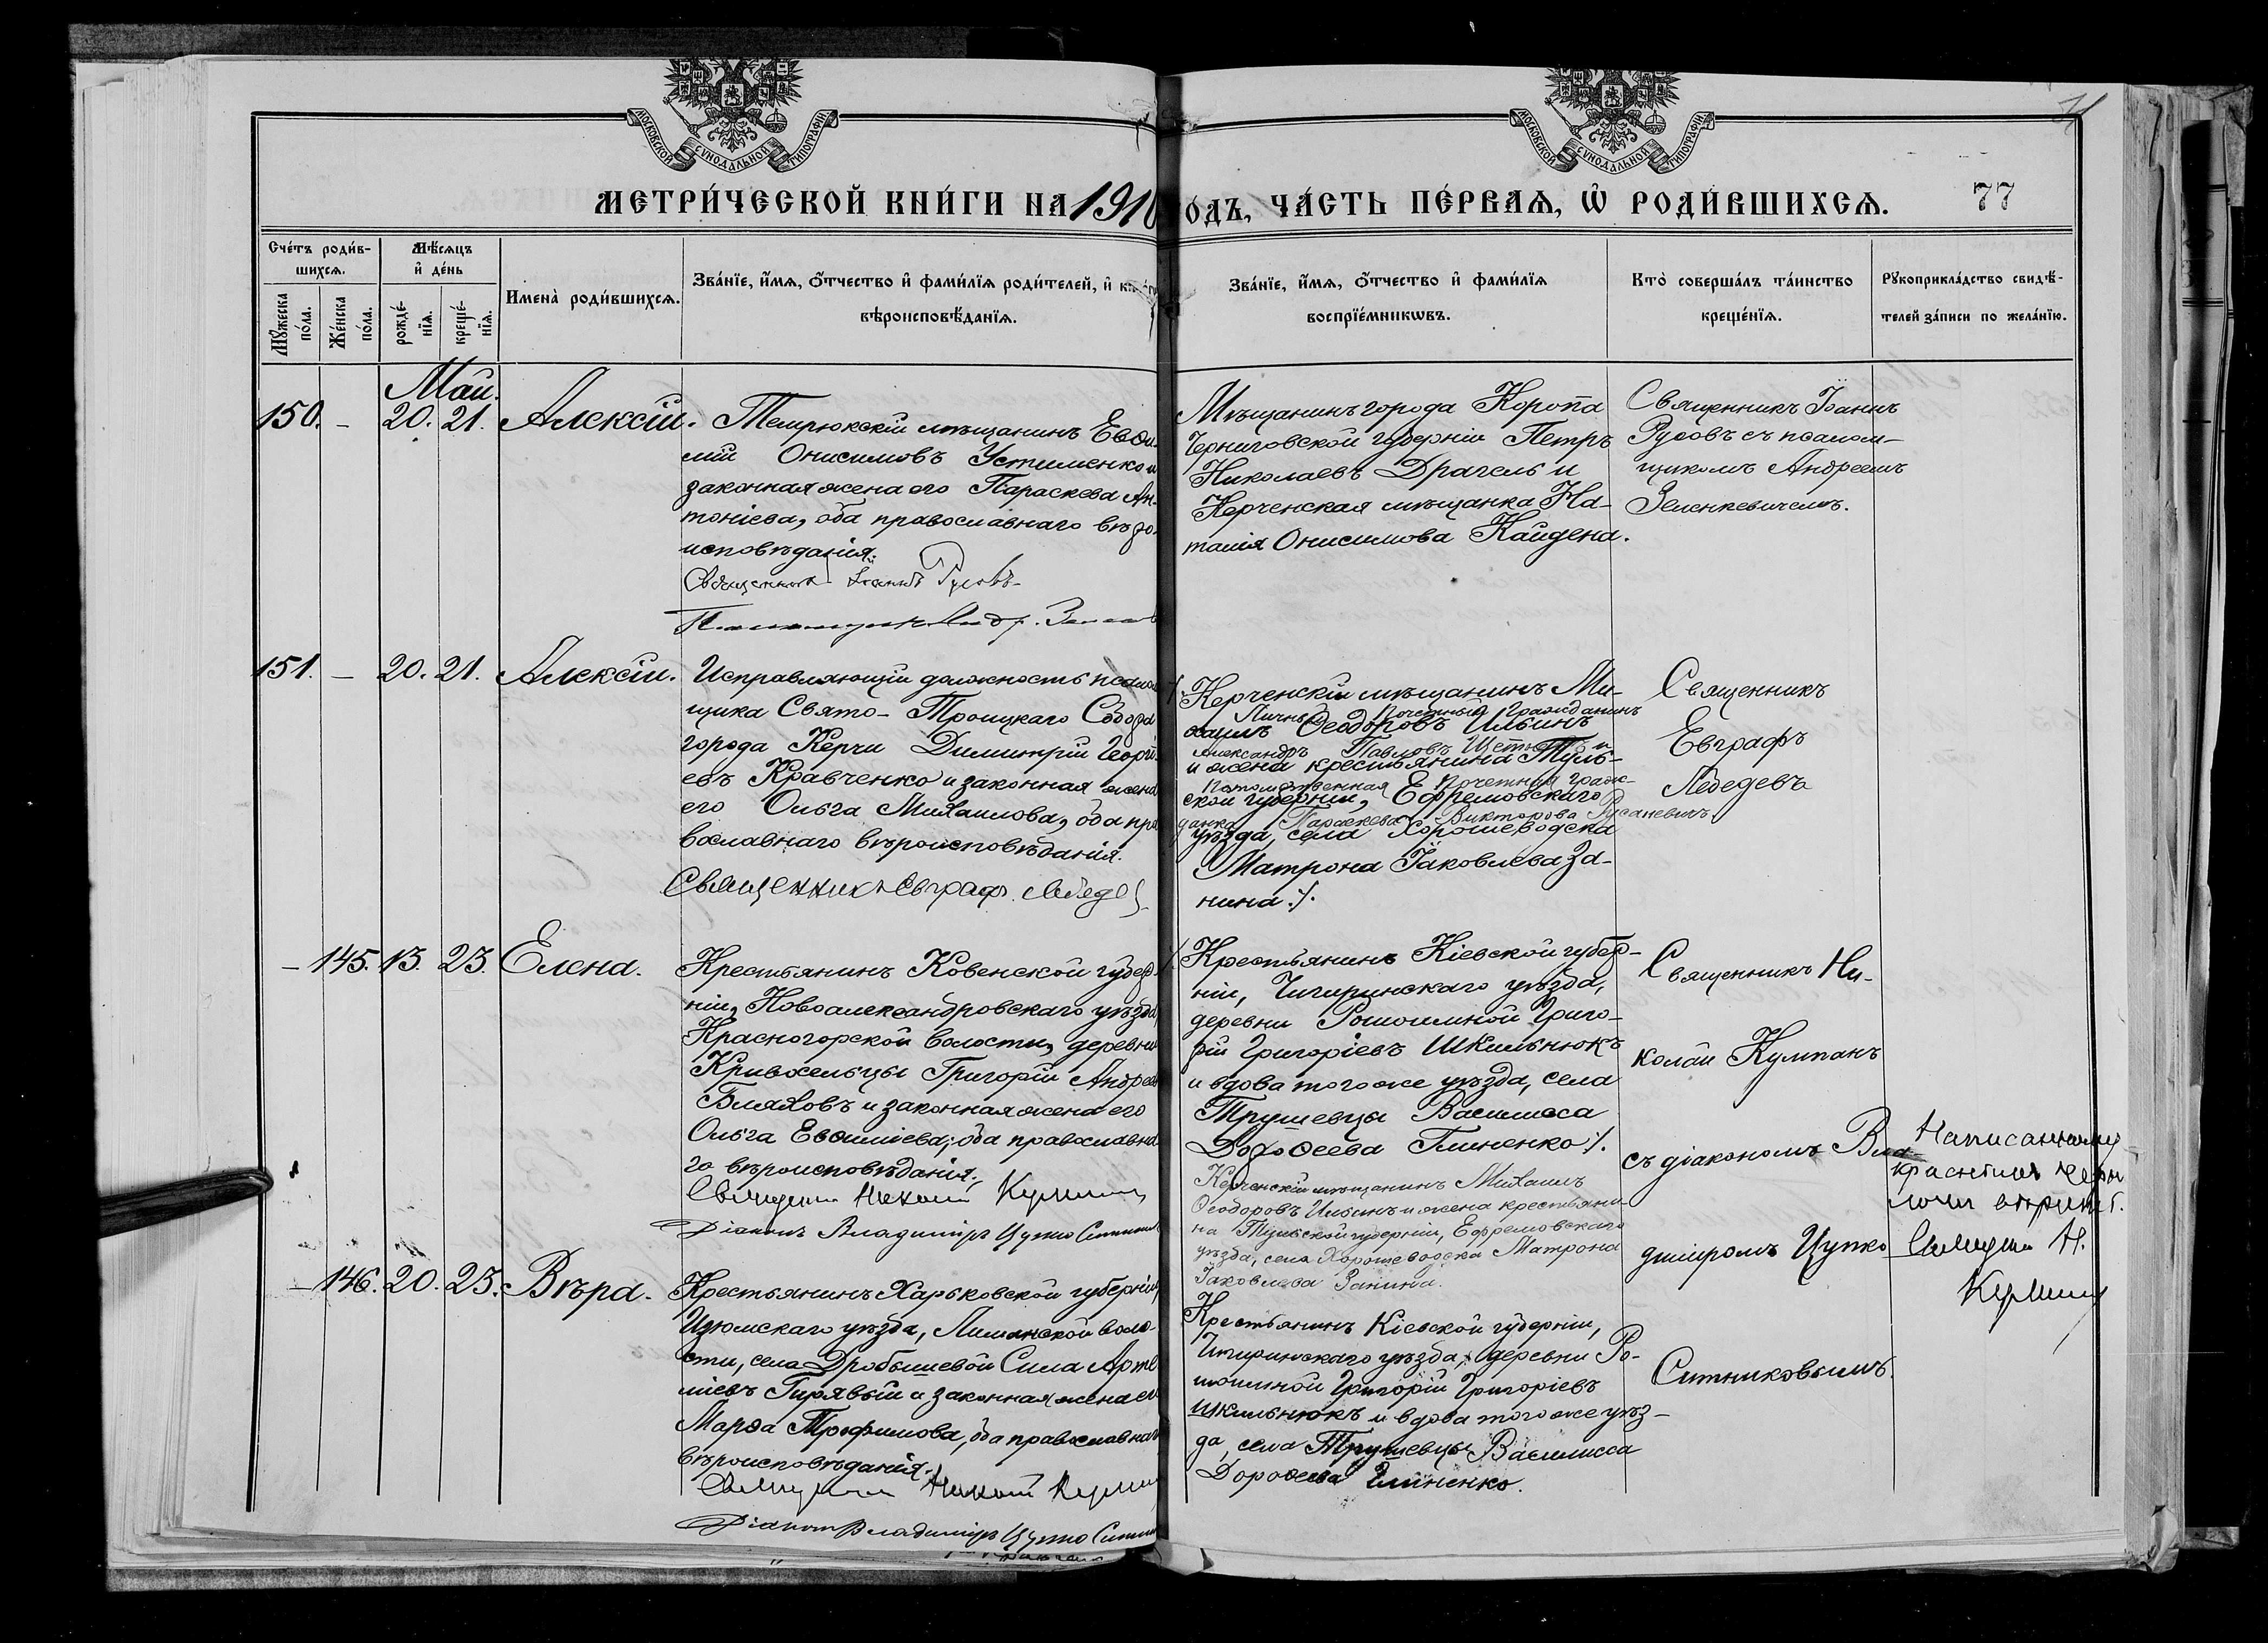 МОСКОВСКОЙ СѴНОДАЛЬНОЙ ТИПОГРАФІИ
МОСКОВСКОЙ СѴНОДАЛЬНОЙ ТИПОГРАФІИ
МЕТРИ́ЧЕСКОЙ КНИ́ГИ НА 1910
ОДЪ, ЧА́СТЬ ПЕ́РВАѦ, Ѡ РОДИ́ВШИХСѦ.
77
Сче́тъ роди́в-
шихсѧ.
Мꙋ́жеска по́ла.
Же́нска по́ла.
Мѣ́сѧцъ
и҆ де́нь
рожде́-
нїѧ.
креще́-
нїѧ.
Имена̀ роди́вшихсѧ.
Зва́нїе, и҆́мѧ, ѻ҆́тчество и҆ фами́лїѧ роди́телей, и҆
вѣроисповѣ́данїѧ.
Зва́нїе, и҆́мѧ, ѻ҆́тчество и҆ фами́лїѧ
воспрїе́мникѡвъ.
Кто̀ соверша́лъ та́инство
креще́нїѧ.
Рꙋкоприкла́дство свидѣ́-
телей за́писи по жела́нїю.
Май.
150. – 20. 21. Алексій.
Темрюкскій мѣщанинъ Евѳи-
мій Онисимовъ Устименко и
законная жена его Параскева Ан-
тоніева, оба православнаго вѣро-
исповѣданія.
Священникъ Іоаннъ Русовъ
Мѣщанинъ города Коропа
Черниговской губерніи Петръ
Николаевъ Драгель и
Керченская мѣщанка На-
талія Онисимова Кайдена.
Священникъ Іоаннъ
Русовъ съ псалом-
щикомъ Андреемъ
Зеленкевичемъ.
151. – 20. 21. Алексій.
Исправляющій должность псалом
щика Свято-Троицкаго Собора
города Керчи Димитрій Георгі-
евъ Кравченко и законная жена
его Ольга Михаилова, оба пра
вославнаго вѣроисповѣданія.
Священникъ Евграфъ Лебеде
Керченскій мѣщанинъ Ми-
Личный Почетный Гражданинъ
хаилъ Ѳеодоровъ Ильинъ
Александръ Павловъ и
и жена крестьянина Туль-
Потомственная Почетная Граж-
ской губерніи, Ефремовскаго
данка Параскева Викторова Русаневичъ
уѣзда, села Хорошеводска
Матрона Іаковлева За-
нина ./.
Священникъ
Евграфъ
Лебедевъ
– 145. 13. 23. Елена.
Крестьянинъ Ковенской губер-
ніи, Новоалександровскаго уѣзда,
Красногорской волости, деревни
Кривосельцы Григорій Андреев
Бляховъ и законная жена его
Ольга Евѳиміева, оба православна
го вѣроисповѣданія.
Священникъ Николай Кумпанъ
Діаконъ Владиміръ Цупко Ситник
Крестьянинъ Кіевской губер-
ніи, Чигиринскаго уѣзда,
деревни Рошоимной Григо-
рій Григоріевъ Шкильнюкъ
и вдова того же уѣзда, села
Трушевцы Василисса
Дороѳеева Глиненко ./.
Керченскій мѣщанинъ Михаилъ
Ѳеодоровъ Ильинъ и жена крестьяни-
на Тульской губерніи, Ефремовскаго
уѣзда, села Хорошеводска Матрона
Іаковлева Занина.
Священникъ Ни-
колай Кумпанъ
съ діакономъ Вла-
диміромъ Цупко
Ситниковымъ.
Написанному
красными черни
лами вѣрить.
Священ. Н.
Кумпанъ
– 146. 20. 23. Вѣра.
Крестьянинъ Харьковской губерніи,
Изюмскаго уѣзда, Лиманской воло-
сти, села Дробышевой Сила Арте
міевъ Гирявый и законная жена ег
Марѳа Трофимова, оба православнаго
вѣроисповѣданія.
Священникъ Николай Кумпан
Діаконъ Владиміръ Цупко Ситни
Крестьянинъ Кіевской губерніи,
Чигиринскаго уѣзда, деревни Ро-
шоимной Григорій Григоріевъ
Шкильнюкъ и вдова того же уѣз-
да, села Трушевцы Василисса
Дороѳеева Глиненко.